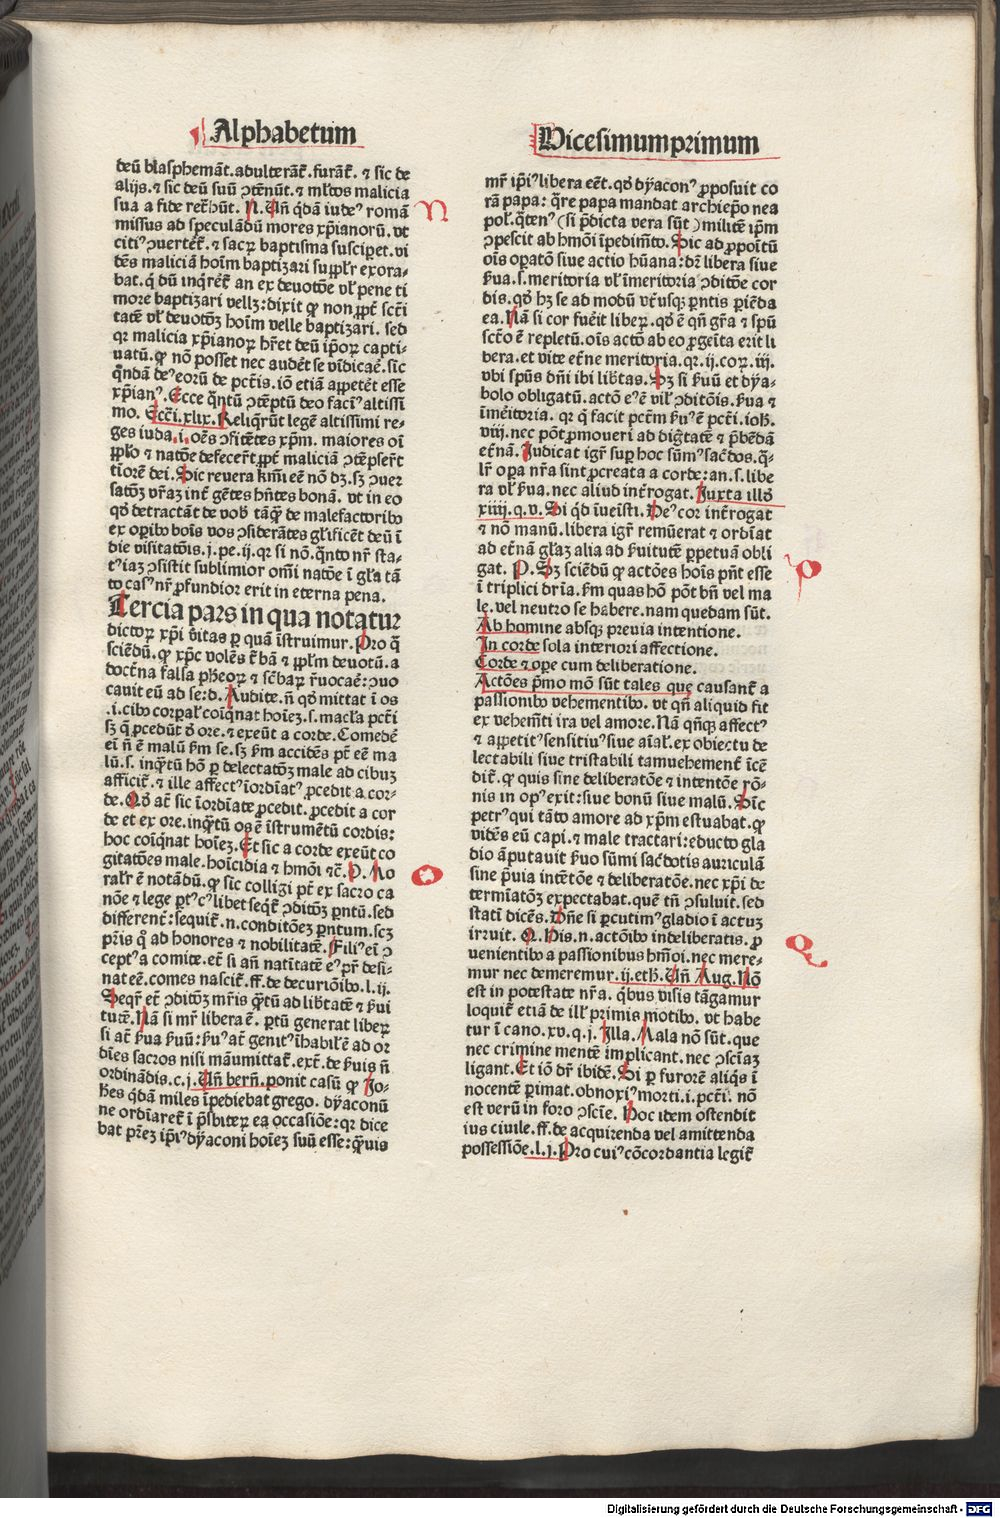 Alphabetum
deū blasphemāt. adulterāt̄. furāt̄. ⁊ sic de
alijs. ⁊ sic deū suū ↄtēnūt. ⁊ ml̄dos malicia
sua a fide ret̄hūt. N. Uñ q̄dā iudeꝰ romā
missus ad speculādū mores xp̄ianorū. vt
citiꝰ ↄuertet̄. ⁊ sacrꝫ baptisma susciꝑet. vi
dēs maliciā hoīm baptizari suꝑpl̄r exora-
bat. q̄ dū inq̄ret̄ an ex deuotōe vl̓ pene ti
more baptizari vellꝫ: dixit ꝙ non ꝓpt̄ sct̄i
tatē vl̓ deuotōꝫ hoīm velle baptizari. sed
qꝛ malicia xp̄ianoꝝ hr̄et deū ip̄oꝝ capti-
uatū. ꝙ nō posset nec audēt se vīdicaē. sic
q̄ndā deꝰ eorū de pct̄is. iō etiā aꝑpetēt esse
xp̄ianꝰ. Ecce q̄ntū ↄtēptū deo faciꝰ altissi
mo. Ecc̄i. xlix. Reliq̄rūt legē altissimi re-
ges iuda. i. oēs ↄfitētes xp̄m. maiores oī
pp̄l̓o ⁊ natōe defecer̄t ꝓpt̄ maliciā ↄtēpser̄t
tiorē dei. Sic reuera km̄i eē nō dꝫ. sꝫ ↄuer
satōꝫ vr̄aꝫ int̄ gētes hn̄tes bonā. vt in eo
qd̓ detractāt de vob̓ tāq̄ꝫ de malefactoribꝰ
ex oꝑibꝰ boīs vos ↄsiderātes gl̓ificēt deū ī
die visitatōis. j. pe. ij. qꝛ si nō. q̄nto nr̄ sta-
tꝰ iaꝫ ↄsistit sublimior om̄i natōe ī gl̓a tā
to casꝰ nr̄ ꝓfundior erit in eterna pena.
Tercia pars in qua notatur
dictoꝝ xp̄i v̄itas ꝑ quā īstruimur. Pro q̄
sciēdū. ꝙ xp̄c volēs t̄ bā ⁊ pp̄l̓m deuotū. a
doct̄na falsa pħeoꝝ ⁊ scᵉ̄baꝝ r̄uocaē: ↄuo
cauit eū ad se: d. Audite. n̄ qd̓ mittat ī os
.i. cibꝰ corꝑal̓ coīq̄nat hoīeꝫ. s. macl̓a pct̄i
sꝫ q̄ ꝓcedūt d̓ ore. ⁊ exeūt a corde. Comedē
eī n̄ ē malū km̄ se. sꝫ km̄ accidēs pt̄ eē ma
lū. s. inq̄tū hō ꝑ delectatōꝫ male ad cibuꝫ
afficit̄. ⁊ ille affectꝰ īordīatꝰ ꝓcedit a cor-
de. Qd̓ at̄ sic īordīate ꝓcedit. ꝓcedit a cor
de et ex ore. inq̄tū os ē īstrumētū cordis:
hoc coīq̄nat hoīeꝫ. Et sic a corde exeūt co
gitatōes male. hoīcidia ⁊ hm̄ōi ⁊c̄. O. Mo
ral̓r ē notādū. ꝙ sic colligi pt̄ ex sacro ca
nōe ⁊ lege ꝑtꝰ cꝰlibet seq̄t̄ ↄditōꝫ ꝑntū. sed
different̄: sequit̄. n. conditōeꝫ ꝑntum. scꝫ
pr̄is q̄ ad honores ⁊ nobilitatē. Filiꝰ eī ↄ
ceptꝰ a comite. et̄ si an̄ natītatē eꝰ pr̄ desi-
nat eē. comes nascit̄. ff. de decuriōibꝰ. l. ij.
Seqr̄ et̄ ↄditōꝫ mr̄is q̄tū ad lib̄tatē ⁊ ẜui
tutē. Nā si mr̄ libera ē. ꝑtū generat liberꝫ
si at̄ ẜua ẜuū: ẜuꝰ at̄ genitꝰ īhabil̓ ē ad or
dīes sacros nisi māumittat̄. ext̄. de ẜuis n̄
ordinādis. c. j. Uñ bern̄. ponit casū ꝙ Jo-
ħes q̄dā miles īpediebat grego. dyaconū
ne ordīaret̄ ī p̄sbiteꝝ ea occasiōe: qꝛ dice
bat pr̄eꝫ ip̄iꝰ dyaconi hoīeꝫ suū esse: q̄uis
Vicesimumprimum
mr̄ ip̄iꝰ libera eēt. qd̓ dyaconꝰ ꝓposuit co
rā papa: q̄re papa mandat archiep̄o nea
pol̓. q̄tenꝰ (si p̄dicta vera sūt) militē ip̄m
ↄpescit ab hm̄ōi īpedim̄to. Sic ad ꝓpoītū
oīs oꝑatō siue actio hūana: dr̄ libera siue
ẜua. s. meritoria vl̓ īmeritoria ↄditōe cor
dis. qd̓ hꝫ se ad modū vt̄usqꝫ ꝑntis ꝑiēda
ea. Nā si cor fuēit liberꝫ. qd̓ ē qn̄ gr̄a ⁊ spū
scto ē repletū. oīs actō ab eo ꝓgeīta erit li
bera. et vite et̄ne meritoria. qꝛ. ij. coꝝ. iij.
vbi spūs dn̄i ibi lib̄tas. Sꝫ si ẜuū et dya-
bolo obligatū. actō eꝰ ē vil̓ ↄditōis. ẜua ⁊
īmēitoria. qꝛ q̄ facit pct̄m ẜuꝰ ē pct̄i. ioħ.
viij. nec pōt ꝓmoueri ad dig̃tatē ⁊ p̄bēdā
et̄nā. Judicat igr̄ suꝑ hoc sūmꝰ sac̄dos. q̄-
lr̄ oꝑa nr̄a sint ꝓcreata a corde: an. s. libe
ra vl̓ ẜua. nec aliud int̄rogat. Juxta illd̓
xiiij. q. v. Si qd̓ īueīsti. Deꝰ cor int̄rogat
⁊ nō manū. libera igr̄ remūerat ⁊ ordīat
ad et̄nā gl̓aꝫ alia ad ẜuitutē ꝑpetuā obli
gat. P. Sꝫ sciēdū ꝙ actōes hoīs pn̄t esse
ī triplici dr̄ia. km̄ quas hō pōt bn̄ vel ma
le. vel neutro se habere. nam quedam sūt.
Ab homine absqꝫ preuia intentione.
In corde sola interiori affectione.
Corde ⁊ oꝑe cum deliberatione.
Actōes p̄mo mō sūt tales que causant̄ a
passionibꝰ vehementibꝰ. vt qn̄ aliquid fit
ex vehem̄ti ira vel amore. Nā qn̄qꝫ affectꝰ
⁊ appetitꝰ sensitiuꝰ siue aīal̓. ex obiectu de
lectabili siue tristabili tamuehement̄ īcē
dit̄. ꝙ quis sine deliberatōe ⁊ intentōe rō-
nis in opꝰ exit: siue bonū siue malū. Sīc
petrꝰ qui tāto amore ad xp̄m estuabat. ꝙ
vidēs eū capi. ⁊ male tractari: educto gla
dio āputauit ẜuo sūmi sac̄dotis auriculā
sine p̄uia intētōe ⁊ deliberatōe. nec xp̄i de
termīatōꝫ expectabat. quē tn̄ ↄsuluit. sed
statī dicēs. Dn̄e si ꝑcutimꝰ gladio ī actuꝫ
irruit. Q. His. n. actōibꝰ indeliberatis. ꝓ
uenientibꝰ a passionibus hm̄oi. nec mere-
mur nec demeremur. ij. etħ. Uñ Aug. Nō
est in potestate nr̄a. q̄bus visis tāgamur
loquit̄ etiā de ill̓ primis motibꝰ. vt habe
tur ī cano. xv. q. j. Illa. Mala nō sūt. que
nec crimine mentē implicant. nec ↄscīaꝫ
ligant. Et iō dr̄ ibidē. Si ꝑ furorē aliq̄s ī
nocentē ꝑimat. obnoxiꝰ morti. i. pct̄i. nō
est verū in foro ↄscīe. Hoc idem ostendit
ius ciuile. ff. de acquirenda vel amittenda
possessiōe. l. j. Pro cuiꝰ cōcordantia legit̄
n
o
p
Q
Digitalisierung gefördert durch die Deutsche Forschungsgemeinschaft - DFG